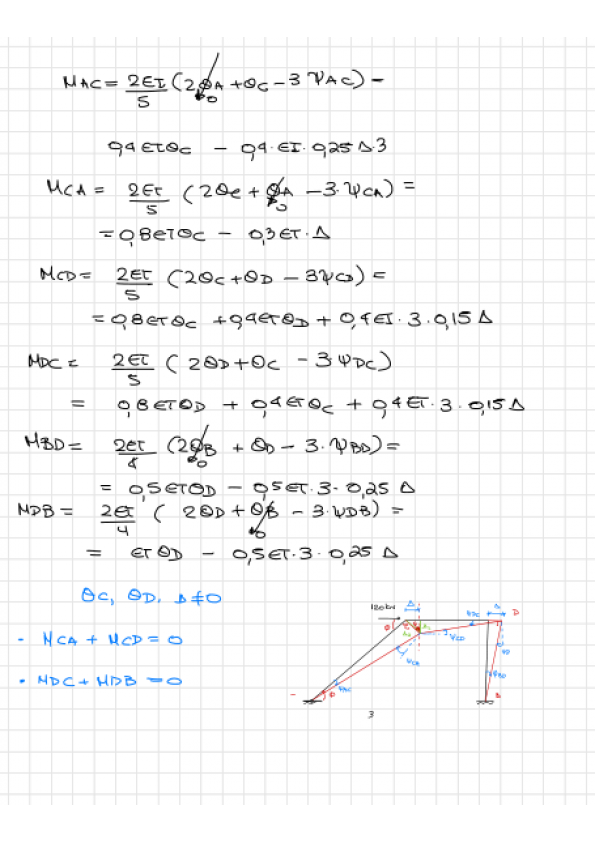 MAC = 2EI/5 (2θA + θC - 3 ΨAC) =
0
0,4 EIθC - 0,4·EI·0,25 Δ·3
MCA = 2EI/5 (2θC + θA - 3·ΨCA) =
0
= 0,8EIθC - 0,3EI·Δ
MCD = 2EI/5 (2θC + θD - 3ΨCD) =
= 0,8EIθC + 0,4EIθD + 0,4EI·3·0,15 Δ
MDC = 2EI/5 (2θD + θC - 3·ΨDC)
= 0,8EIθD + 0,4EIθC + 0,4EI·3·0,15 Δ
MBD = 2EI/4 (2θB + θD - 3·ΨBD) =
0
= 0,5EIθD - 0,5EI·3·0,25 Δ
MDB = 2EI/4 (2θD + θB - 3·ΨDB) =
0
= EIθD - 0,5EI·3·0,25 Δ
θC, θD, Δ ≠ 0
- MCA + MCD = 0
• MDC + MDB = 0
120kN
Δ
ΨDC
Δ
D
ΨCD
ΨCA
ΨAC
ΨBD
B
3